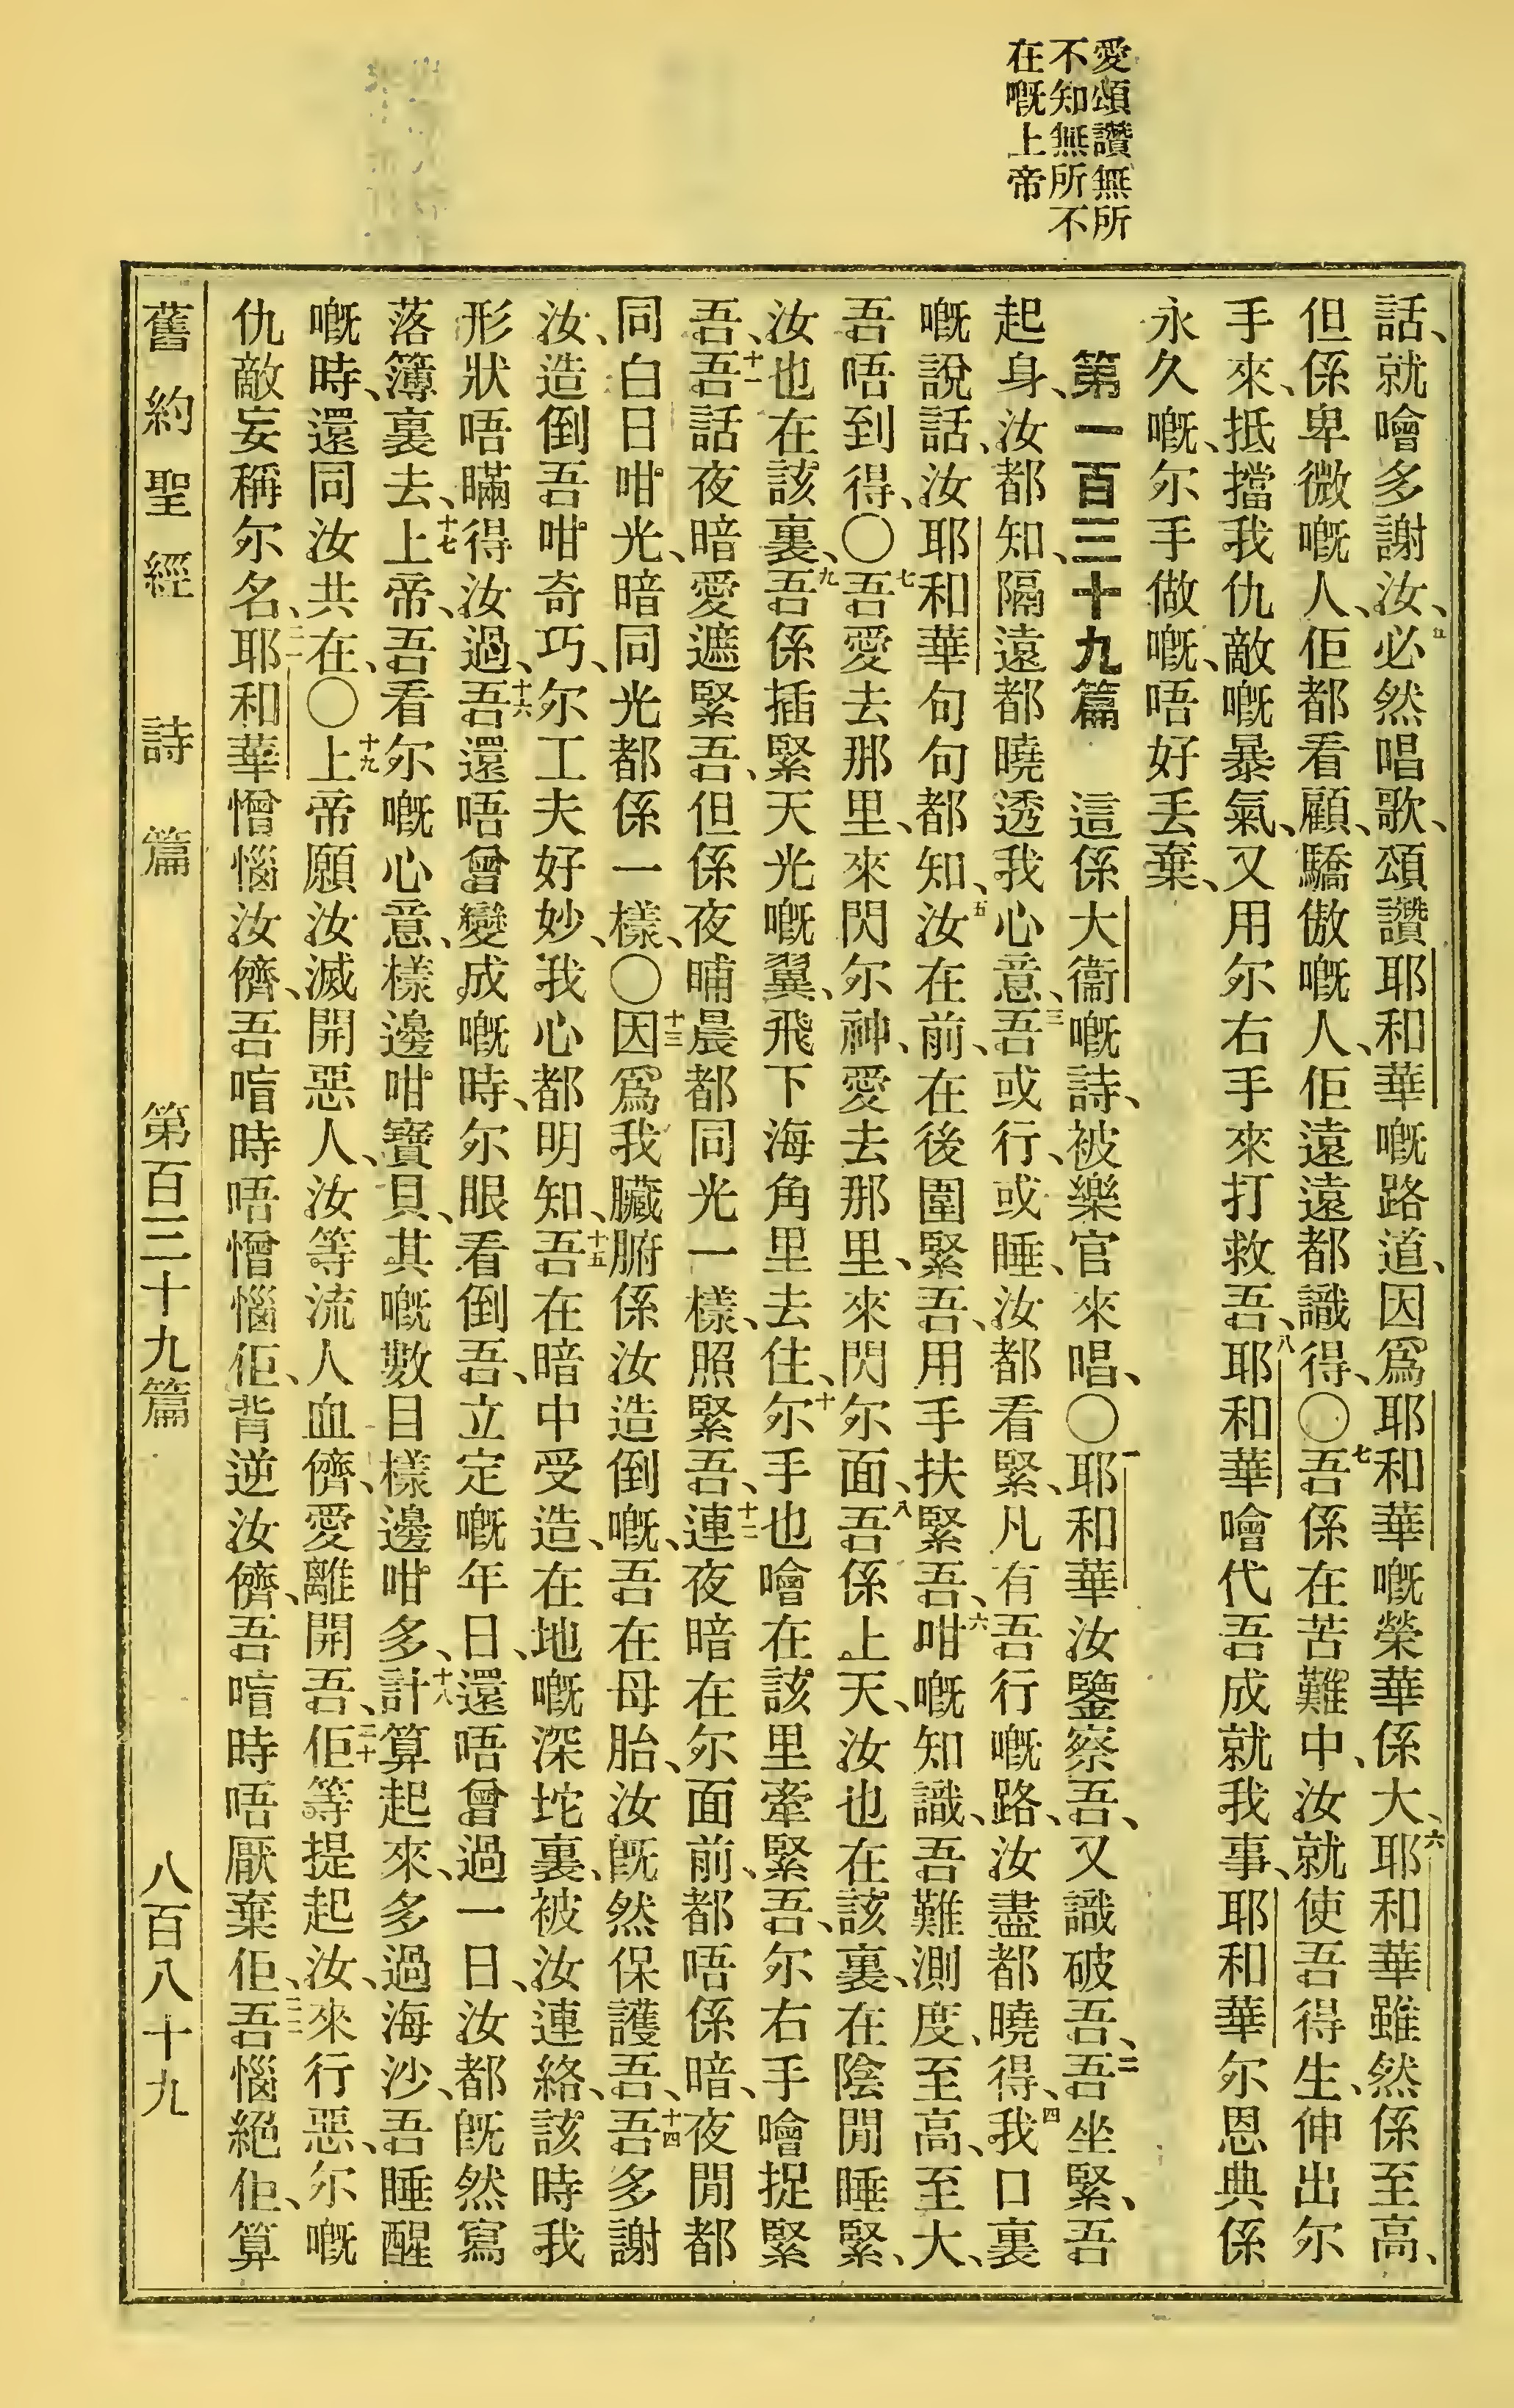 愛頌讚無所
不知無所不
在嘅上帝
話、就噲多謝汝、五必然唱歌、頌讚耶和華嘅路道、因爲耶和華嘅榮華係大、六耶和華雖然係至高、
但係卑微嘅人、佢都看顧、驕傲嘅人、佢遠遠都識得、〇七吾係在苦難中、汝就使吾得生、伸出尔
手來、抵擋我仇敵嘅暴氣、又用尔右手來打救吾、八耶和華噲代吾成就我事、耶和華尔恩典係
永久嘅、尔手做嘅、唔好丢棄、
第一百三十九篇 這係大衞嘅詩、被樂官來唱、〇一耶和華汝鑒察吾、又識破吾、二吾坐緊、吾
起身、汝都知、隔遠都曉透我心意、三吾或行、或睡、汝都看緊、凡有吾行嘅路、汝盡都曉得、四我口裏
嘅說話、汝耶和華句句都知、五汝在前、在後圍緊吾、用手扶緊吾、六咁嘅知識、吾難測度、至高、至大、
吾唔到得、〇七吾愛去那里、來閃尔神、愛去那里、來閃尔面、八吾係上天、汝也在該裏、在陰間睡緊、
汝也在該裏、九吾係插緊天光嘅翼、飛下海角里去住、十尔手也噲在該里牽緊吾、尔右手噲捉緊
吾、十一吾話夜暗愛遮緊吾、但係夜晡晨都同光一樣、照緊吾、十二連夜暗在尔面前、都唔係暗、夜間都
同白日咁光、暗同光都係一樣、〇十三因爲我臟腑係汝造倒嘅、吾在母胎、汝旣然保護吾、十四吾多謝
汝、造倒吾咁奇巧、尔工夫好妙、我心都明知、十五吾在暗中受造、在地嘅深坨裏、被汝連絡、該時我
形狀唔瞞得汝過、十六吾還唔曾變成嘅時、尔眼看倒吾、立定嘅年日、還唔曾過一日、汝都旣然寫
落簿裏去、十七上帝、吾看尔嘅心意、樣邊咁寶貝、其嘅數目樣邊咁多、十八計算起來、多過海沙、吾睡醒
嘅時、還同汝共在、〇十九上帝願汝滅開惡人、汝等流人血儕、愛離開吾、二十佢等提起汝、來行惡、尔嘅
仇敵妄稱尔名、二一耶和華憎惱汝儕、吾喑時唔憎惱佢、背逆汝儕、吾喑時唔厭棄佢、二二吾惱絕佢、算
舊約聖經 詩篇 第百三十九篇 八百八十九